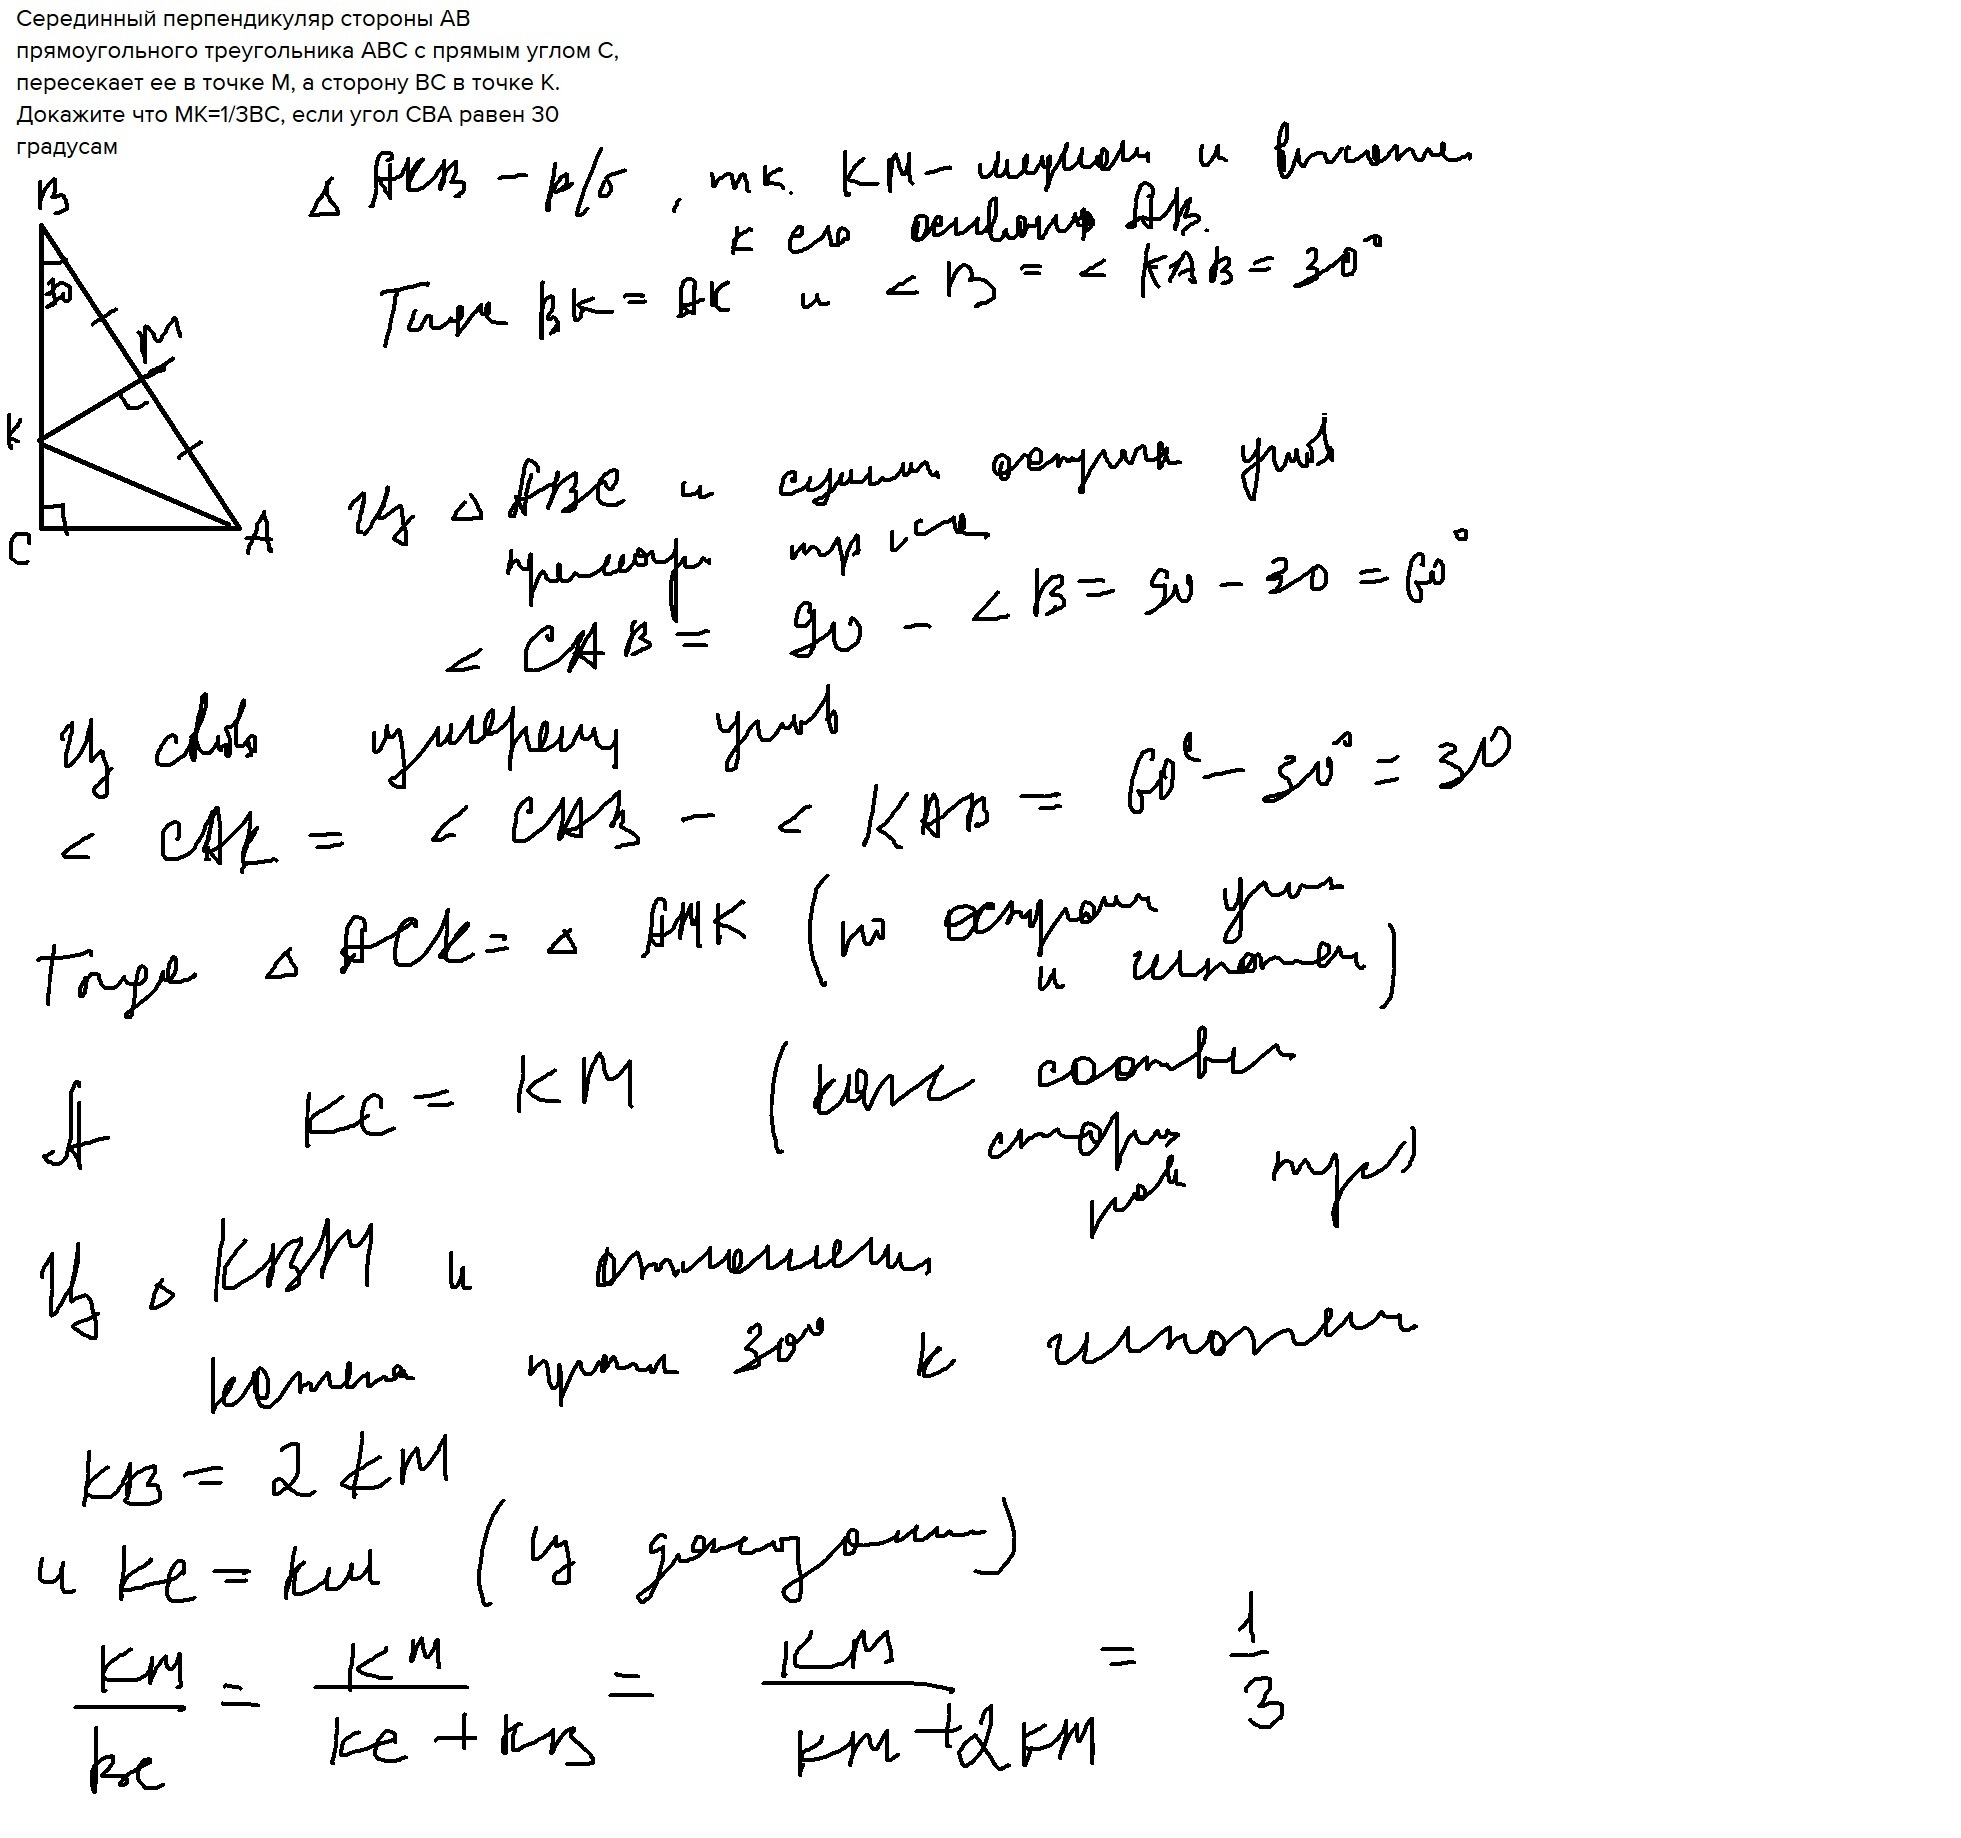 Серединный перпендикуляр стороны АВ
прямоугольного треугольника АВС с прямым углом С,
пересекает ее в точке М, а сторону ВС в точке К.
Докажите что МК=1/3ВС, если угол СВА равен 30
градусам
B
30
M
K
C
A
△ AKB - р/б, т.к. KM - медиан и высота
к его основан AB.
Тогда BK = AK и < B = < KAB = 30°
Из △ ABC и суммы острых углов
прямоуг тр
< CAB = 90 - < B = 90 - 30 = 60°
Из измерения углов
< CAK = < CAB - < KAB = 60° - 30° = 30
Тогда △ ACK = △ AMK (по острому углу
и гипотен)
А KC = KM (как соответ
сторон
рав)
Из △ KBM и отношения
катета против 30° к гипотен
KB = 2 KM
и KC = KM (из доказан)
KM/BC = KM/(KC + KB) = KM/(KM + 2KM) = 1/3